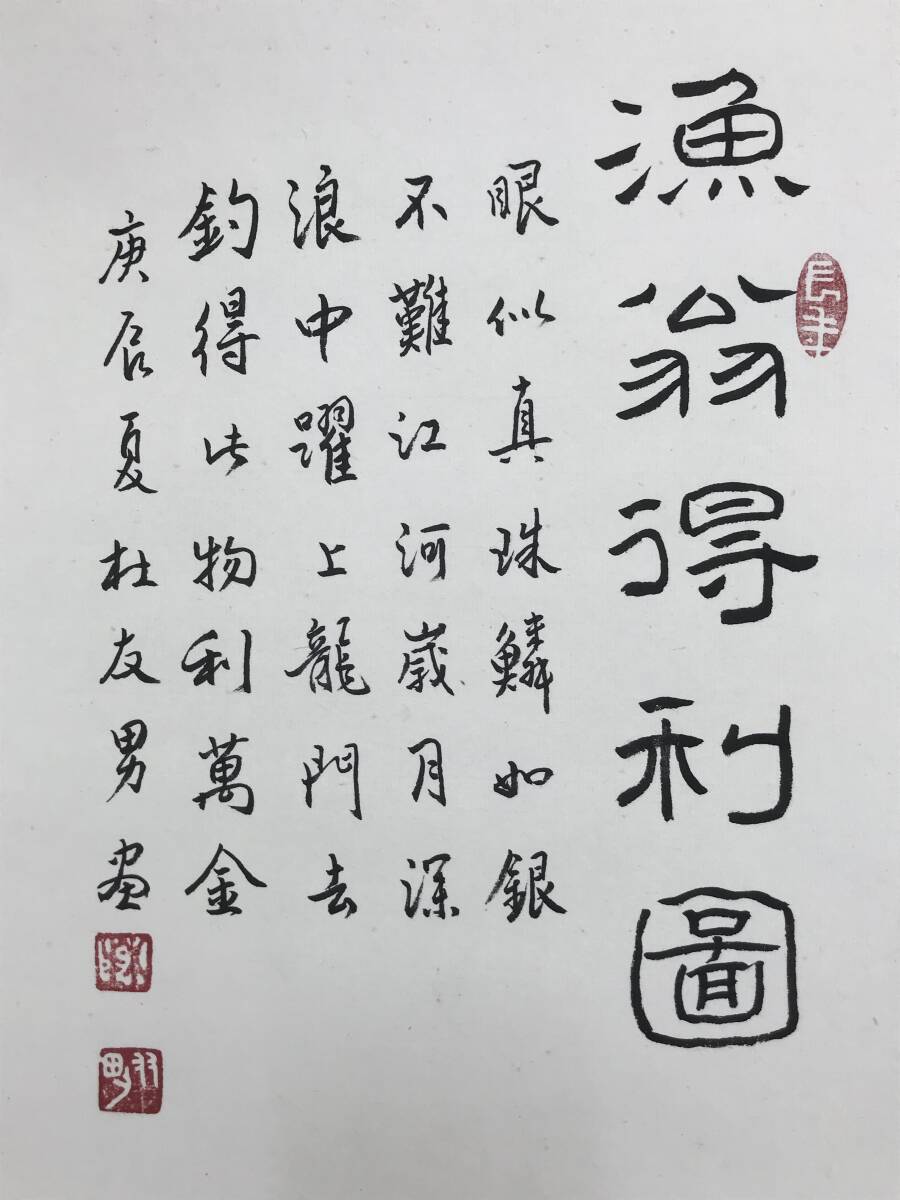 漁翁得利圖
眼似真珠鱗如銀
不難江河歲月深
浪中躍上龍門去
釣得此物利萬金
庚辰夏杜友男畫